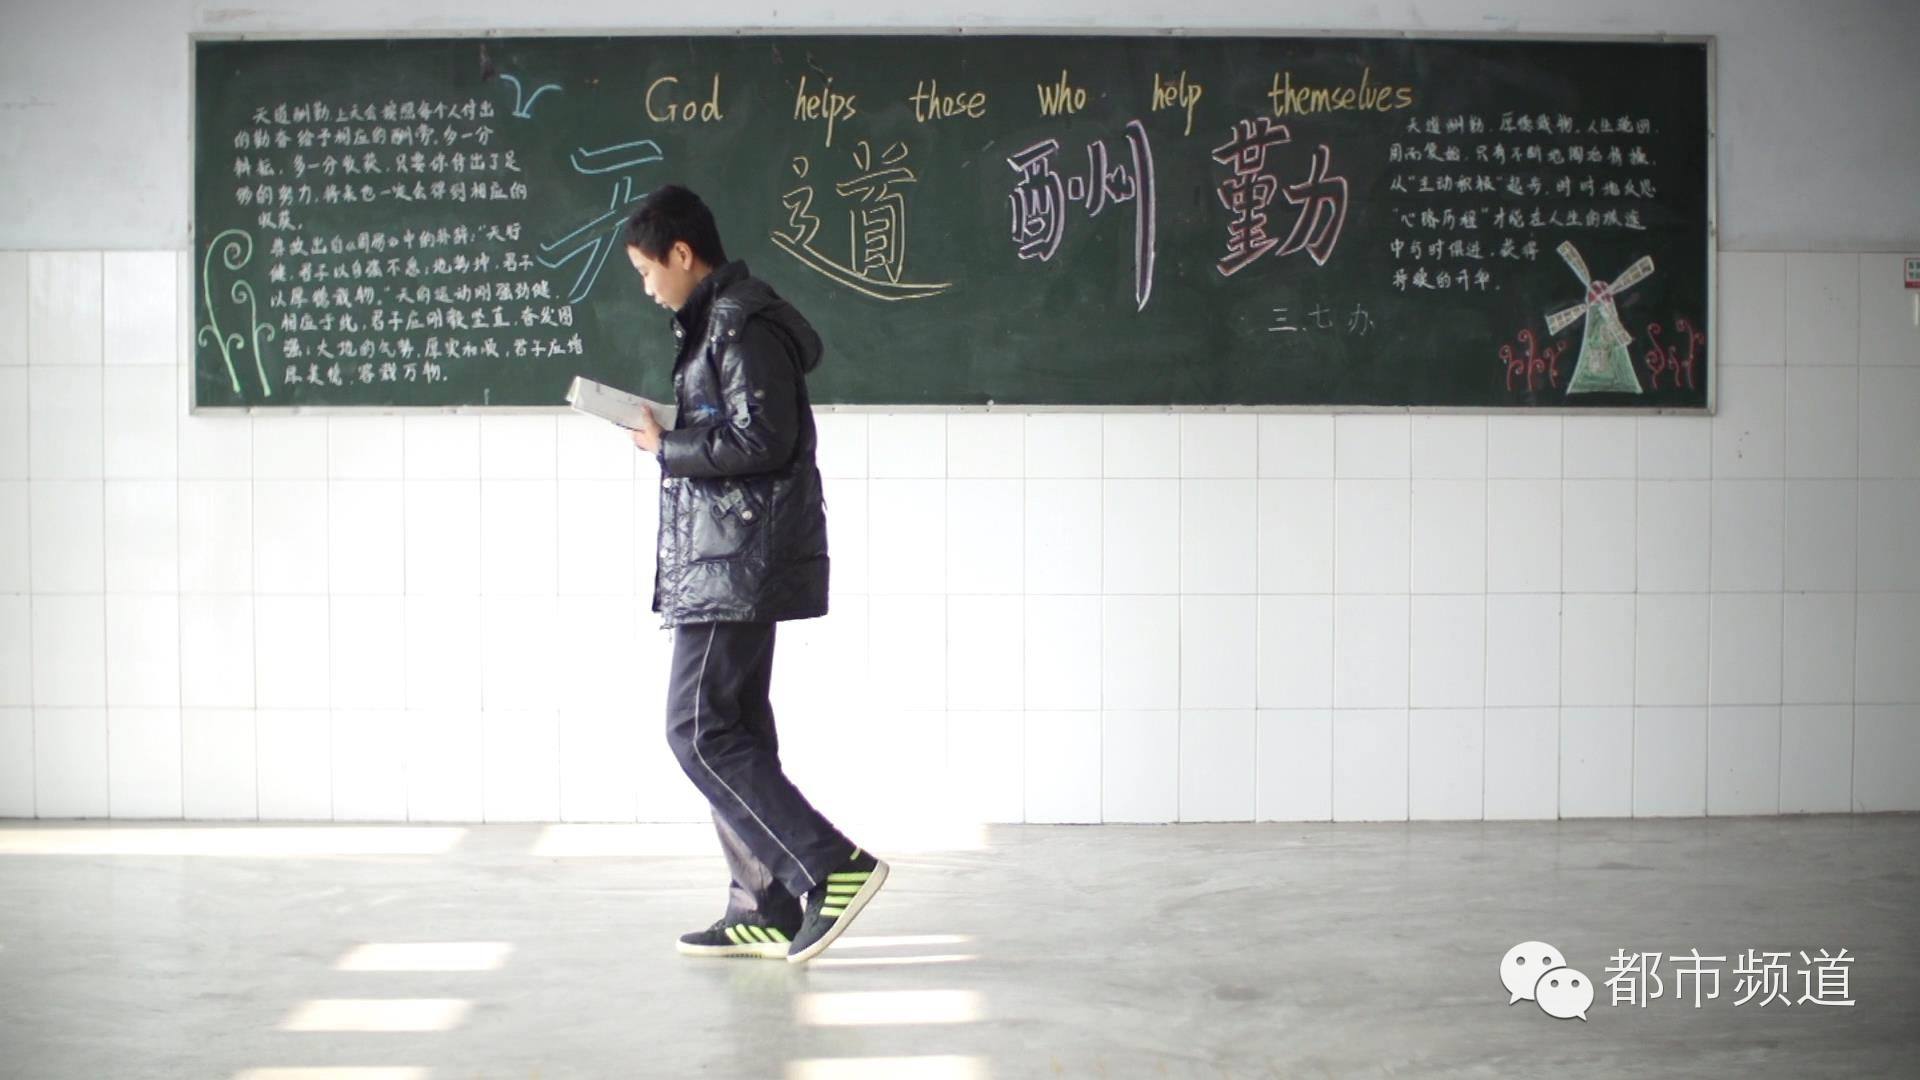 God helps those who help themselves
天道酬勤
天道酬勤上天会按照每个人付出
的勤奋给予相应的酬劳。多一分
耕耘，多一分收获，只要你付出了足
够的努力，将来也一定会得到相应的
收获。
典故出自《周易》中的卦辞："天行
健，君子以自强不息；地势坤，君子
以厚德载物。"天的运动刚强劲健，
相应于此，君子应刚毅坚直，奋发图
强；大地的气势，厚实和顺，君子应增
厚美德，容载万物。
天道酬勤，厚德载物。人生
周而复始，只有不断地陶冶情操，
从"主动积极"起步，时时地反思
"心路历程"才能在人生的旅途
中与时俱进，获得
等候的升华。
三、七办
都市频道